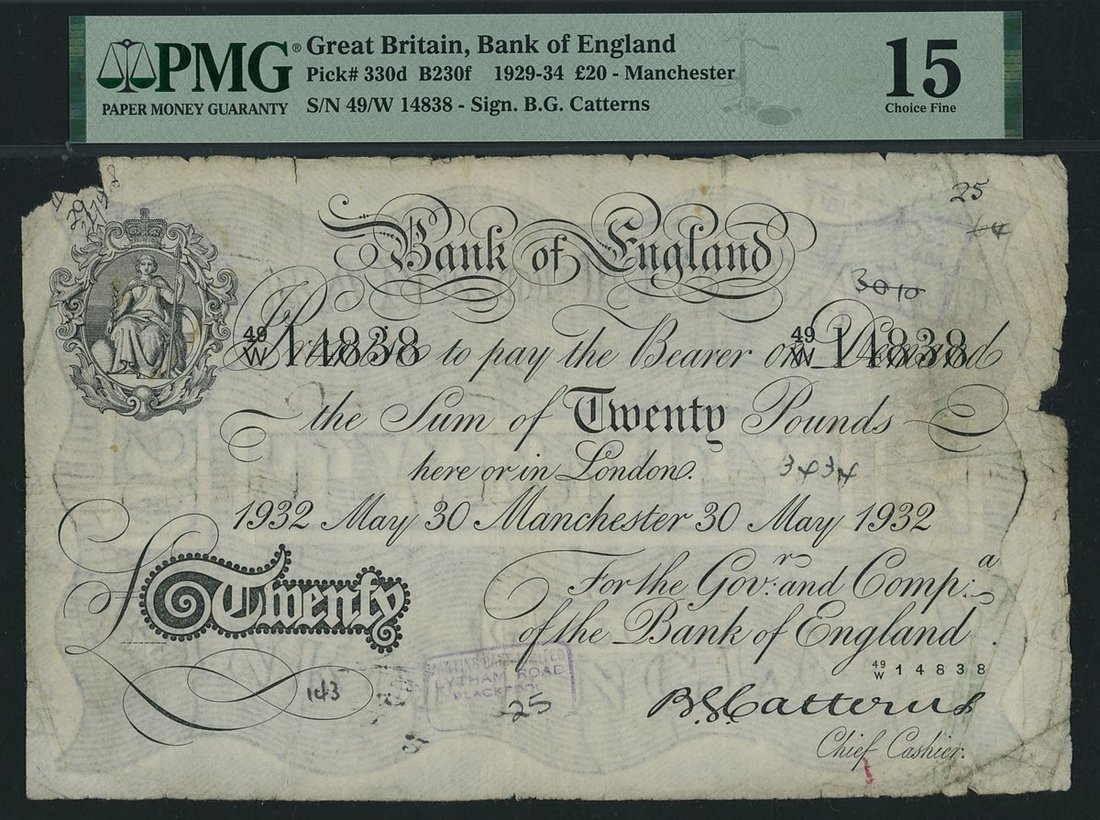 PMG® Great Britain, Bank of England 15
Pick# 330d B230f 1929-34 £20 - Manchester
PAPER MONEY GUARANTY S/N 49/W 14838 - Sign. B.G. Catterns Choice Fine
25
Bank of England
3010
49/W 14838 49/W 14838
I Promise to pay the Bearer on Demand
the Sum of Twenty Pounds
here or in London.
3434
1932 May 30 Manchester 30 May 1932
£Twenty
For the Govr. and Compa.
of the Bank of England.
49/W 14838
MARTINS BANK LIMITED
LYTHAM ROAD
BLACKPOOL
143
25
B.G. Catterns
Chief Cashier.